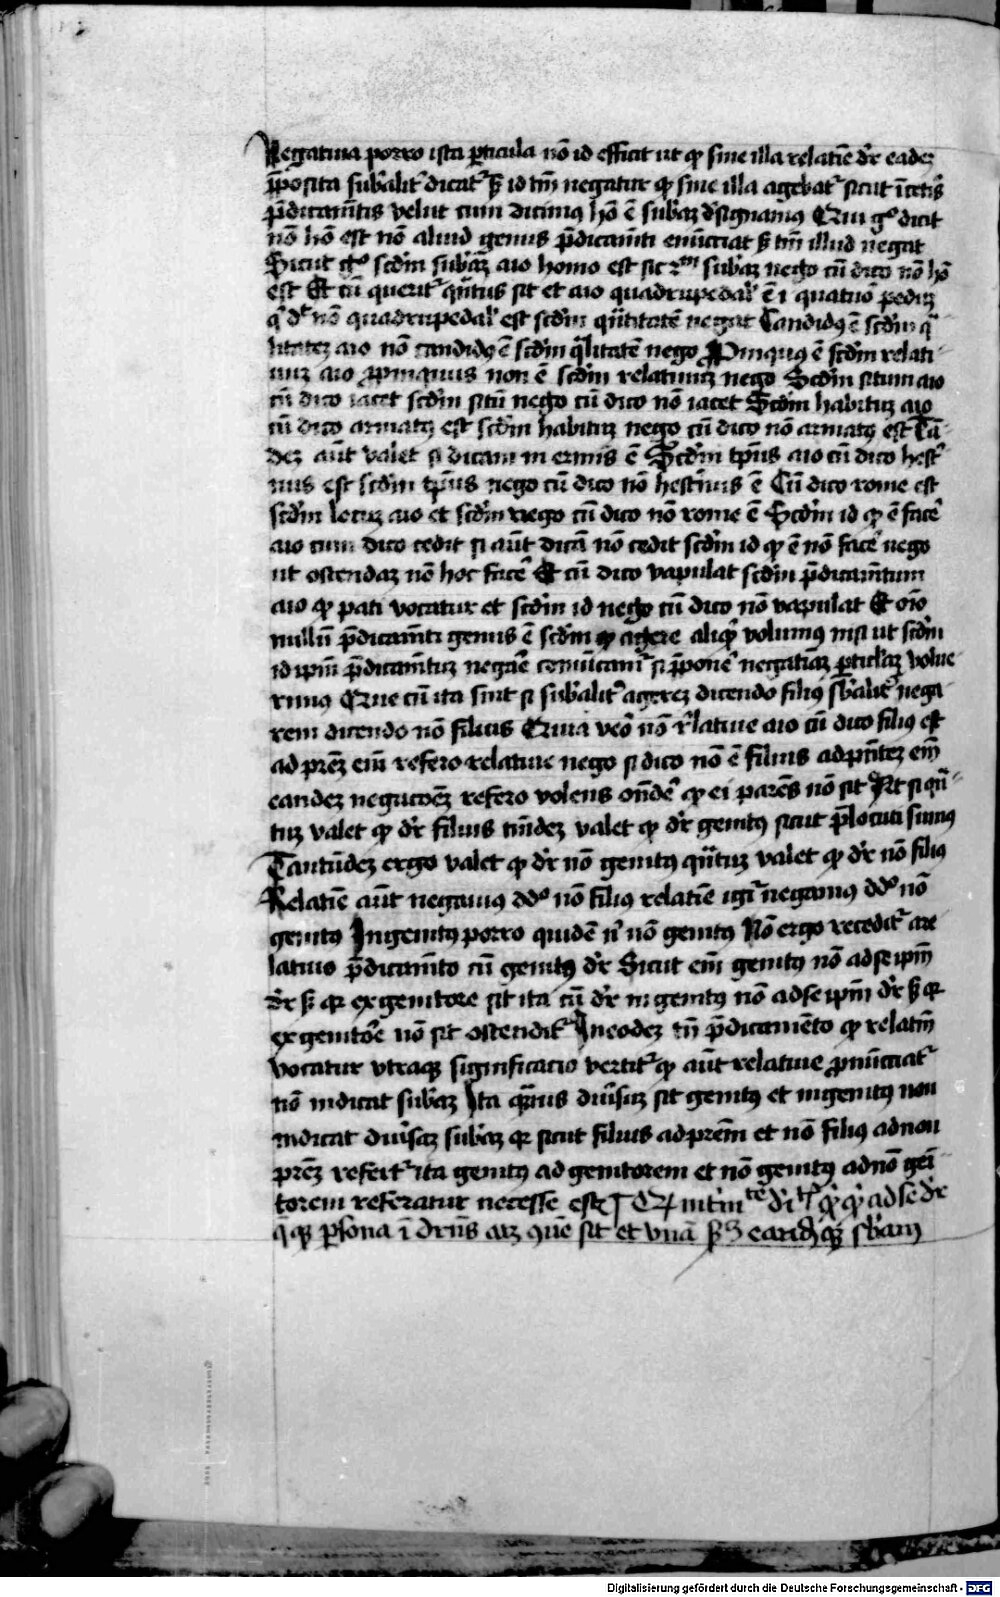 Negatiua porro ista p̱ticula nō id efficit ut qđ sine illa relatīe dr̄ eadeꝫ
p̄posita sub̄alit᷑ dicat᷑ sꝫ id tm̄ negatur qđ sine illa agebat᷑ sicut ī cetis̄
p̄dicam̄tis velut cum dicimꝯ hō ē sub̄aꝫ d̄signamꝯ Qui gͦ dicit
nō hō est nō aliud genus p̄dicam̄ti enūctiat sꝫ tm̄ illud negat
Sicut gͦ scd̄m sub̄aꝫ aio homo est sic scd̄m sub̄aꝫ nego cū dico nō hō
est Et cū querit᷑ q̄ntus sit et aio quadrupedal᷑ ē i quatuō pedū
q̄ dc̄ nō quadrupedal᷑ est scd̄m q̄ntitatē negat Candidꝯ ē scd̄m q̄
litateꝫ aio nō candidꝯ ē scd̄m q̄litatē nego Ꝓpinquꝯ ē scd̄m relati
uuꝫ aio ꝓpinquus non ē scd̄m relatiuuꝫ nego Scd̄m situm aio
cū dico iacet scd̄m sitū nego cū dico nō iacet Scd̄m habituꝫ aio
cū dico armatꝯ est scd̄m habituꝫ nego cū dico nō armatꝯ est Tā
deꝫ aūt valet si dicam in ermis ē Scd̄m tp̄us aio cū dico hest᷑
nus est scd̄m tp̄us nego cū dico nō hest᷑nus ē Cū dico rome est
scd̄m locuꝫ aio et scd̄m nego cū dico nō rome ē Scd̄m id qđ ē fac᷑e
aio cum dico cedit si aūt dicā nō cedit scd̄m id qđ ē nō fac᷑e nego
ut ostendaꝫ nō hoc fac᷑e Et cū dico vapulat scd̄m p̄dicam̄tum
aio qđ pati vocatur et scd̄m id nego cū dico nō vapulat Et oīo
nullū p̄dicam̄ti genus ē scd̄m qđ agere aliqđ volumꝯ nisi ut scd̄m
id ipm̄ p̄dicam̄tuꝫ negāe conuīcam᷑ si p̄pon᷑e negatiāꝫ p̱ticl̄aꝫ volue
rimꝯ Que cū ita sint si sub̄alit᷑ agereꝫ dicendo filiꝯ sb̄alit᷑ nega
rem dicendo nō filius Quia ve͛o nō r̄latiue aio cū dico filiꝯ est
ad pr̄eꝫ eīm refero relatiue nego si dico nō ē filius ad pn̄teꝫ em̄
eandeꝫ negacōeꝫ refero volens ond̄e᷑ qđ ei parēs nō sit At si q̄n
tuꝫ valet qđ dr̄ filius tn̄deꝫ valet qđ dr̄ genitꝯ sicut p̄locuti sumꝯ
Tantūdeꝫ ergo valet qđ dr̄ nō genitꝯ q̄ntuꝫ valet qđ dr̄ nō filiꝯ
Relatīe aūt negamꝯ dd̄o nō filiꝯ relatīe igr̄ negamꝯ dd̄o nō
genitꝯ Ingenitꝯ porro quidē n̄ nō genitꝯ Nō ergo recedit᷑ a re
latiuo p̄dicam̄to cū genitꝯ dr̄ Sicut em̄ genitꝯ nō ad se ipm̄
dr̄ sꝫ qꝛ ex genitore sit ita cū dr̄ ingenitꝯ nō ad se ipm̄ dr̄ sꝫ qꝛ
ex genitōe nō sit ostendit᷑ In eodeꝫ tn̄ p̄dicamēto qđ relatm̄
vocatur vtraqꝫ significatio vertit᷑ qđ aūt relatiue ꝓnūciat᷑
nō indicat sub̄aꝫ Ita q̄uis diūsuꝫ sit genitꝯ et ingenitꝯ non
indicat diūsaꝫ sub̄aꝫ qꝛ sicut filius ad pr̄em et nō filiꝯ ad non
pr̄eꝫ refert᷑ ita genitꝯ ad genitorem et nō genitꝯ ad nō gei
torem referatur necesse est
Digitalisierung gefördert durch die Deutsche Forschungsgemeinschaft - DFG